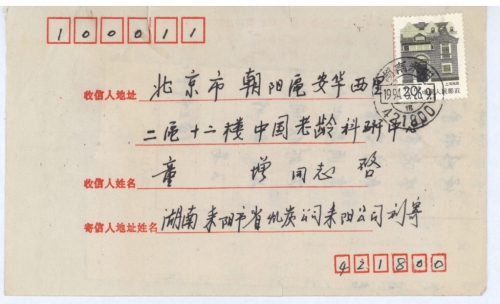 100011
20分
中国人民邮政
湖南耒阳
1994
421800
收信人地址 北京市朝阳区安华西里
二区十二楼中国老龄科研中心
收信人姓名 童增同志 启
寄信人地址姓名 湖南耒阳市省煤炭公司耒阳公司刘寄
421800